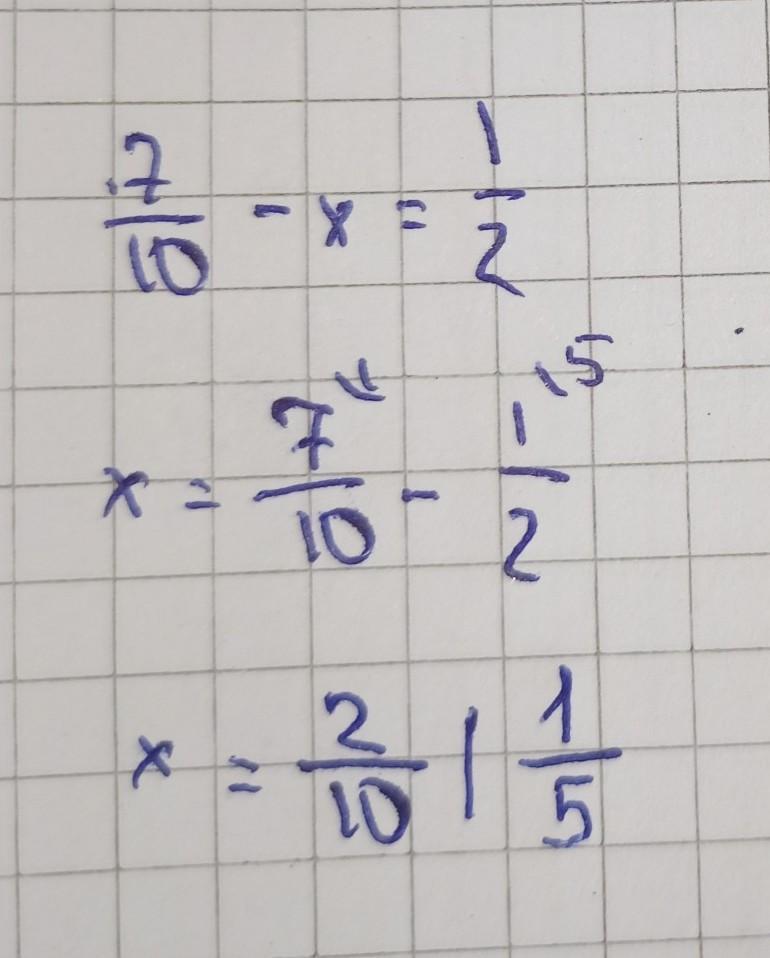 7/10 - x = 1/2
x = 7/10 \1 - 1/2 \5
x = 2/10 | 1/5